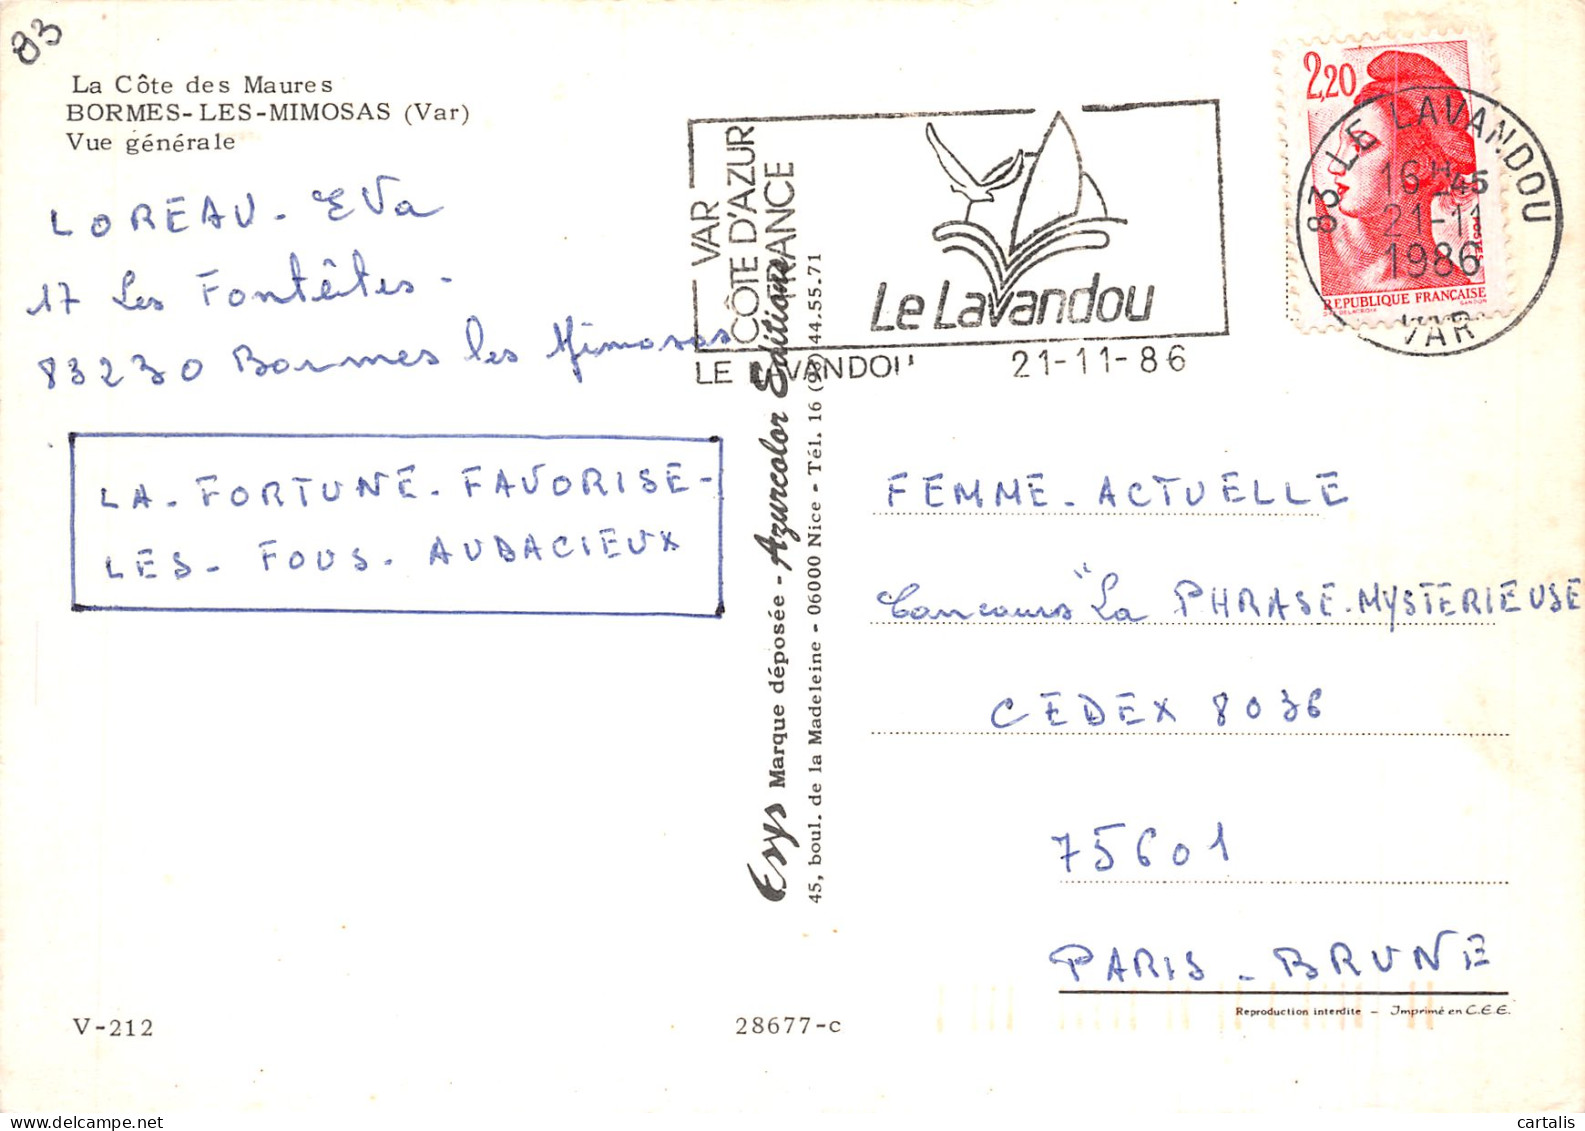 83
La Côte des Maures
BORMES-LES-MIMOSAS (Var)
Vue générale
LOREAU - Eva
17 Les Fontêites -
83230 Bormes les Mimosas
LA - FORTUNE - FAVORISE -
LES - FOUS - AUDACIEUX
V-212
28677-c
Esys Marque déposée - Azurcolor Editions
45, boul. de la Madeleine - 06000 Nice - Tél. 16 (93) 44.55.71
VAR
CÔTE D'AZUR
FRANCE
Le Lavandou
LE LAVANDOU
21-11-86
2,20
REPUBLIQUE FRANÇAISE
83 LE LAVANDOU
16H45
21-11
1986
VAR
FEMME - ACTUELLE
Concours "La PHRASE - MYSTERIEUSE
CEDEX 8036
75601
PARIS - BRUNE
Reproduction interdite - Imprimé en C.E.E.
cartalis